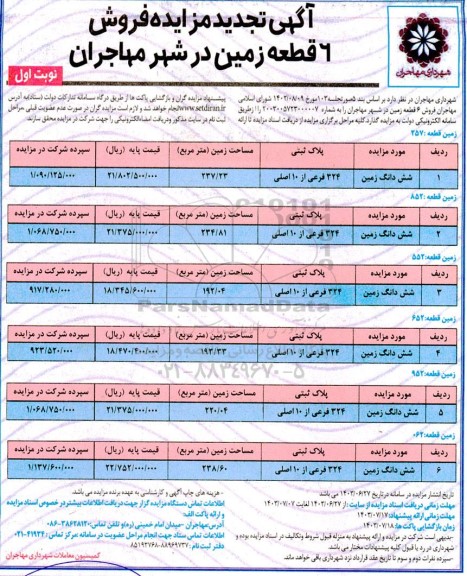 آگهی تجدید مزایده فروش
۶ قطعه زمین در شهر مهاجران
نوبت اول
شهرداری مهاجران
شهرداری مهاجران در نظر دارد بر اساس بند صورتجلسه ۱۰۳ مورخ ۱۴۰۳/۰۸/۰۹ شورای اسلامی
مهاجران فروش ۶ قطعه زمین در شهر مهاجران را به شماره ۲۰۰۳۰۰۵۷۲۳۰۰۰۰۰۷ را از طریق
سامانه الکترونیکی دولت به مزایده گذارد. کلیه مراحل برگزاری مزایده از دریافت اسناد مزایده تا ارائه
پیشنهاد مزایده گران و بازگشایی پاکت ها از طریق درگاه سامانه تدارکات دولت (ستاد) به آدرس
www.setdiran.ir انجام خواهد شد و لازم است مزایده گران در صورت عدم عضویت قبلی، مراحل
ثبت نام در سایت مذکور و دریافت امضاء الکترونیکی را جهت شرکت در مزایده محقق سازند.
زمین قطعه ۲۵۷:
ردیف مورد مزایده پلاک ثبتی مساحت زمین (متر مربع) قیمت پایه (ریال) سپرده شرکت در مزایده
۱ شش دانگ زمین ۳۲۴ فرعی از ۱۰ اصلی ۲۳۷/۲۳ ۲۱/۸۰۲/۵۰۰/۰۰۰ ۱/۰۹۰/۱۲۵/۰۰۰
زمین قطعه ۸۵۲:
ردیف مورد مزایده پلاک ثبتی مساحت زمین (متر مربع) قیمت پایه (ریال) سپرده شرکت در مزایده
۲ شش دانگ زمین ۳۲۴ فرعی از ۱۰ اصلی ۲۳۴/۸۱ ۲۱/۳۷۵/۰۰۰/۰۰۰ ۱/۰۶۸/۷۵۰/۰۰۰
زمین قطعه ۵۵۲:
ردیف مورد مزایده پلاک ثبتی مساحت زمین (متر مربع) قیمت پایه (ریال) سپرده شرکت در مزایده
۳ شش دانگ زمین ۳۲۴ فرعی از ۱۰ اصلی ۱۹۲/۰۴ ۱۸/۳۴۵/۶۰۰/۰۰۰ ۹۱۷/۲۸۰/۰۰۰
زمین قطعه ۶۵۲:
ردیف مورد مزایده پلاک ثبتی مساحت زمین (متر مربع) قیمت پایه (ریال) سپرده شرکت در مزایده
۴ شش دانگ زمین ۳۲۴ فرعی از ۱۰ اصلی ۱۹۳/۳۳ ۱۸/۴۷۰/۴۰۰/۰۰۰ ۹۲۳/۵۲۰/۰۰۰
زمین قطعه ۹۵۲:
ردیف مورد مزایده پلاک ثبتی مساحت زمین (متر مربع) قیمت پایه (ریال) سپرده شرکت در مزایده
۵ شش دانگ زمین ۳۲۴ فرعی از ۱۰ اصلی ۲۲۰/۰۴ ۲۱/۳۷۵/۰۰۰/۰۰۰ ۱/۰۶۸/۷۵۰/۰۰۰
زمین قطعه ۰۶۲:
ردیف مورد مزایده پلاک ثبتی مساحت زمین (متر مربع) قیمت پایه (ریال) سپرده شرکت در مزایده
۶ شش دانگ زمین ۳۲۴ فرعی از ۱۰ اصلی ۲۳۸/۶۰ ۲۲/۷۵۲/۰۰۰/۰۰۰ ۱/۱۳۷/۶۰۰/۰۰۰
تاریخ انتشار مزایده در سامانه در تاریخ ۱۴۰۳/۰۶/۲۷ می باشد
مهلت زمانی دریافت اسناد مزایده از سایت: از ۱۴۰۳/۰۶/۲۷ لغایت ۱۴۰۳/۰۷/۰۷
مهلت زمانی ارائه پیشنهاد: ۱۴۰۳/۰۷/۱۷
زمان بازگشایی پاکت ها: ۱۴۰۳/۰۷/۱۸
-بدیهی است شرکت در مزایده و ارائه پیشنهاد به منزله قبول شروط و تکالیف در اسناد مزایده بوده و
شهرداری در رد یا قبول کلیه پیشنهادات مختار می باشد.
-سپرده نفرات دوم و سوم تا تاریخ عقد قرارداد نزد شهرداری باقی خواهد ماند.
- هزینه های چاپ آگهی و کارشناسی به عهده برنده مزایده می باشد.
اطلاعات تماس دستگاه مزایده گزار جهت دریافت اطلاعات بیشتر در خصوص اسناد مزایده
و ارائه پاکت الف:
آدرس مهاجران - میدان امام خمینی (ره) و تلفن تماس: ۳۸۶۲۸۱۲-۰۸۶
اطلاعات تماس ستاد جهت انجام مراحل عضویت در سامانه: مرکز تماس: ۴۱۹۳۴-۰۲۱
دفتر ثبت نام: ۸۸۹۶۹۷۳۷-۸۵۱۹۳۷۶۸
کمیسیون معاملات شهرداری مهاجران
ParsNamadData
۰۲۱-۸۸۳۴۹۶۷۰-۵